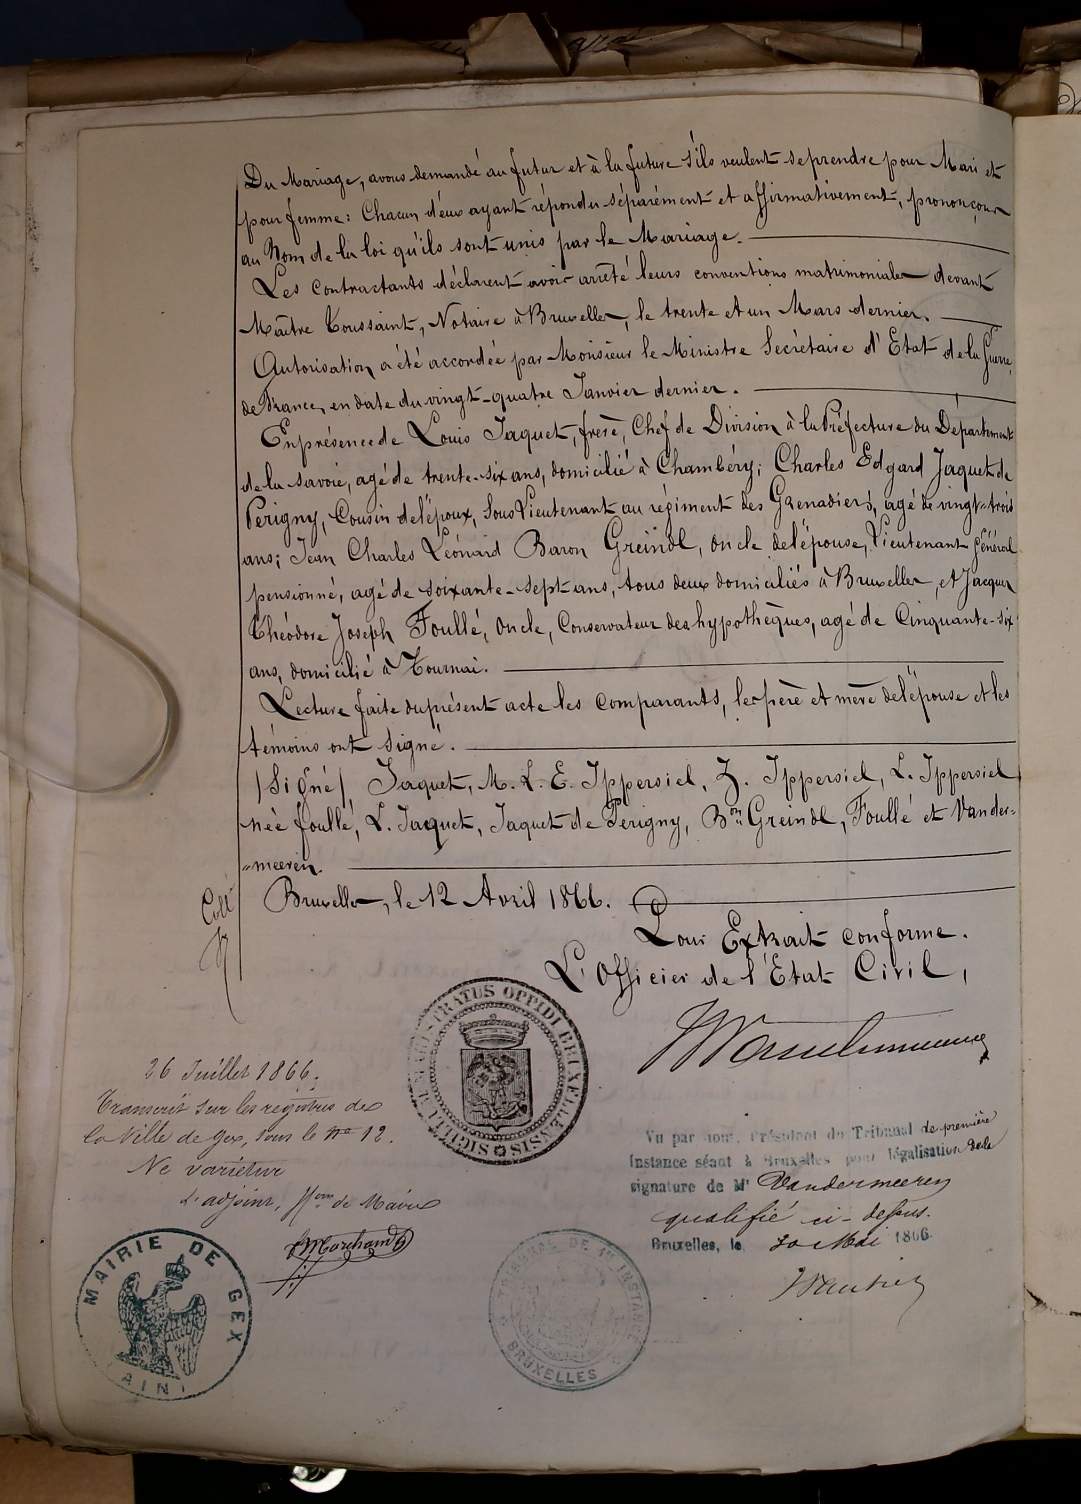 Du Mariage, avons demandé au futur et à la future s'ils veulent se prendre pour Mari et
pour femme: Chacun d'eux ayant répondu séparément et affirmativement, prononçons
au Nom de la loi qu'ils sont unis par le Mariage.
Les contractants déclarent avoir arrêté leurs conventions matrimoniales devant
Maître Toussaint, Notaire à Bruxelles, le trente et un Mars dernier.
Autorisation a été accordée par Monsieur le Ministre Secrétaire d'Etat de la Guerre,
de France, en date du vingt-quatre Janvier dernier.
En présence de Louis Jaquet, frère, Chef de Division à la Préfecture du Département
de la Savoie, agé de trente-six ans, domicilié à Chambéry; Charles Edgard Jaquet de
Perigny, Cousin de l'époux, Sous Lieutenant au régiment des Grenadiers, agé de vingt-trois
ans; Jean Charles Léonard Baron Greindl, oncle de l'épouse, Lieutenant Général
pensionné, agé de soixante-sept ans, tous deux domiciliés à Bruxelles, et Jacques
Théodore Joseph Foullé, oncle, Conservateur des hypothèques, agé de Cinquante-six
ans, domicilié à Tournai.
Lecture faite du présent acte les comparants, les père et mère de l'épouse et les
témoins ont signé.
/Signé/ Jaquet, M. L. E. Ippersiel, Z. Ippersiel, L. Ippersiel
née foullé, L. Jaquet, Jaquet de Perigny, Bon Greindl, Foullé et Vander-
"meeren.
Bruxelles, le 12 Avril 1866.
Coll
Pour Extrait conforme.
L'Officier de l'Etat Civil,
SIGILLUM MAGISTRATUS OPPIDI BRUXELLENSIS
26 Juillet 1866.
Transcrit sur les registres de
la Ville de Gex, sous le no 12.
Ne varietur
L'adjoint, ffons de Maire
Marchand
MAIRIE DE GEX
AIN
Vu par nous, Président du Tribunal de première
Instance séant à Bruxelles pour légalisation de la
signature de Mr Vandermeeren
qualifié ci-dessus.
Bruxelles, le 30 Mai 1866
TRIBUNAL DE 1re INSTANCE
BRUXELLES